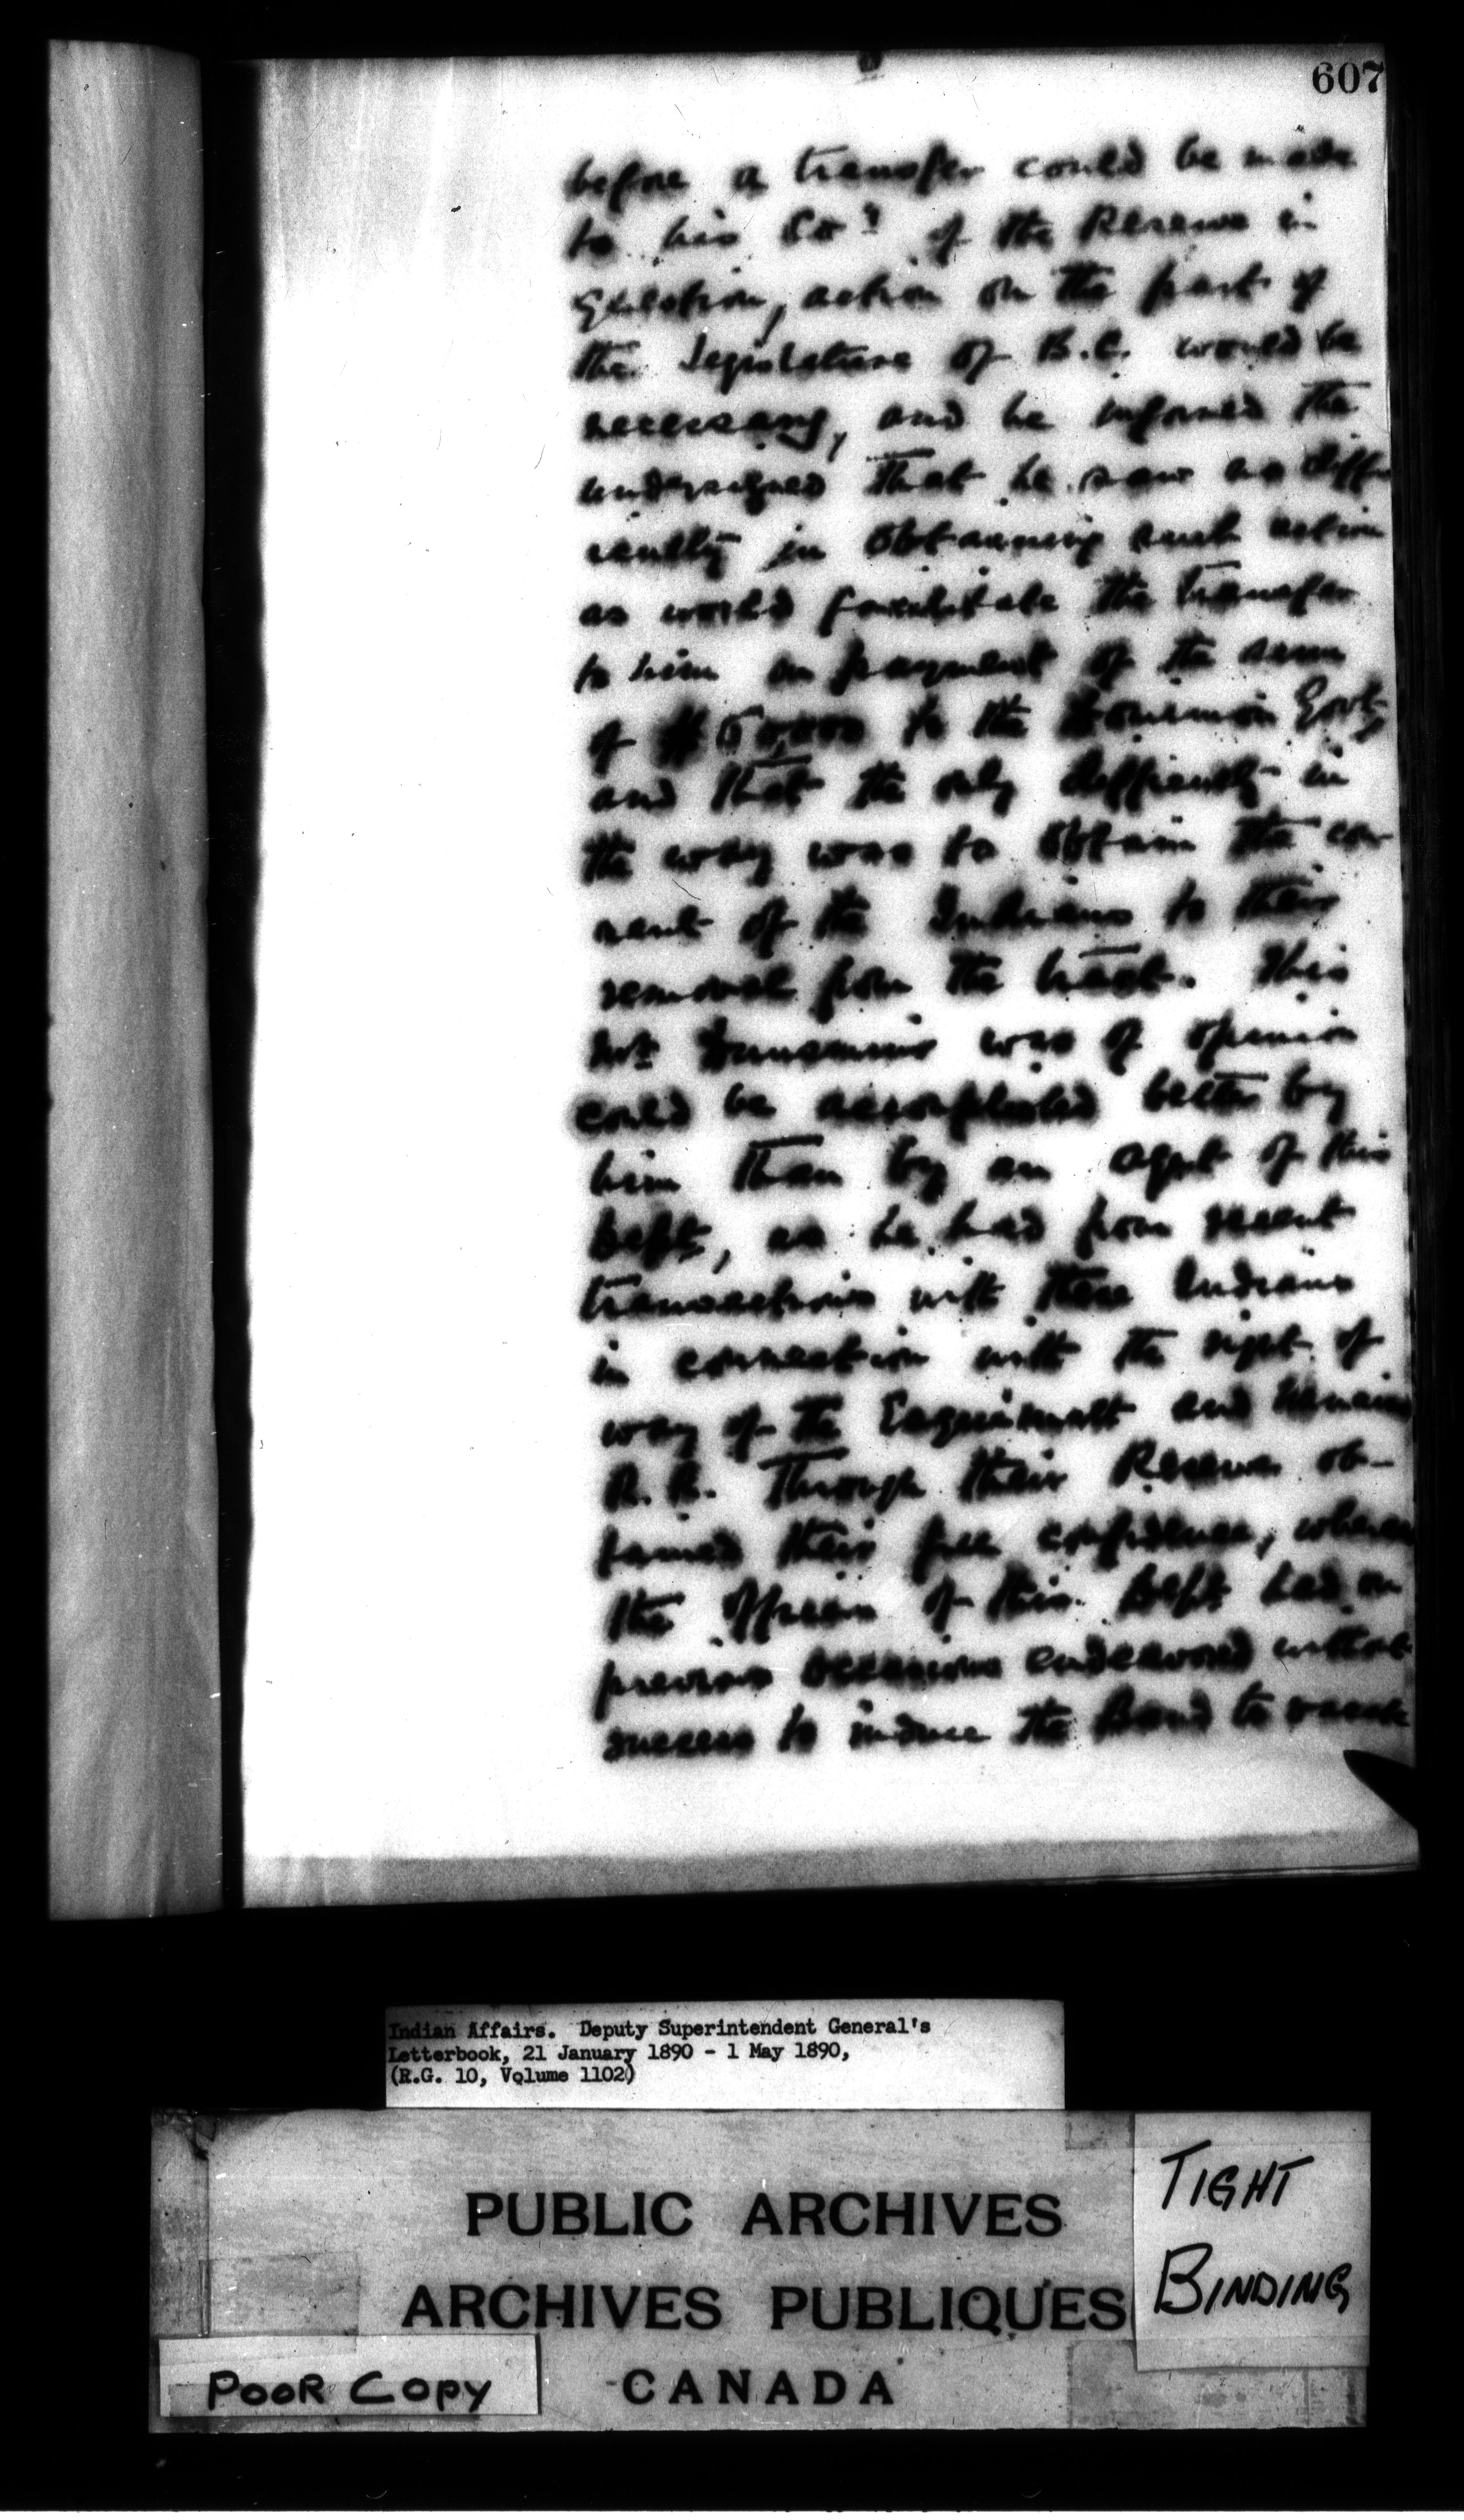 607
before a transfer could be made
to his Coy of the Reserve in
question, action on the part of
the Legislature of B.C. would be
necessary, and he informed the
undersigned that he saw no diffi
culty in obtaining such action
as would facilitate the transfer
to him on payment of the sum
of to the Dominion Govt,
and that the only difficulty in
the way was to obtain the con
sent of the Indians to their
removal from the tract. This
Mr Dunsmuir was of opinion
could be accomplished better by
him than by an agent of this
Dept, as he had from recent
transactions with these Indians
in connection with the right of
way of the Esquimalt and Nanaimo
R.R. through their Reserve ob-
tained their full confidence, whereas
the officers of this Dept had on
previous occasions endeavored without
success to induce the Band to vacate
Indian Affairs. Deputy Superintendent General's
Letterbook, 21 January 1890 - 1 May 1890,
(R.G. 10, Volume 1102)
PUBLIC ARCHIVES
ARCHIVES PUBLIQUES
CANADA
TIGHT
BINDING
POOR COPY